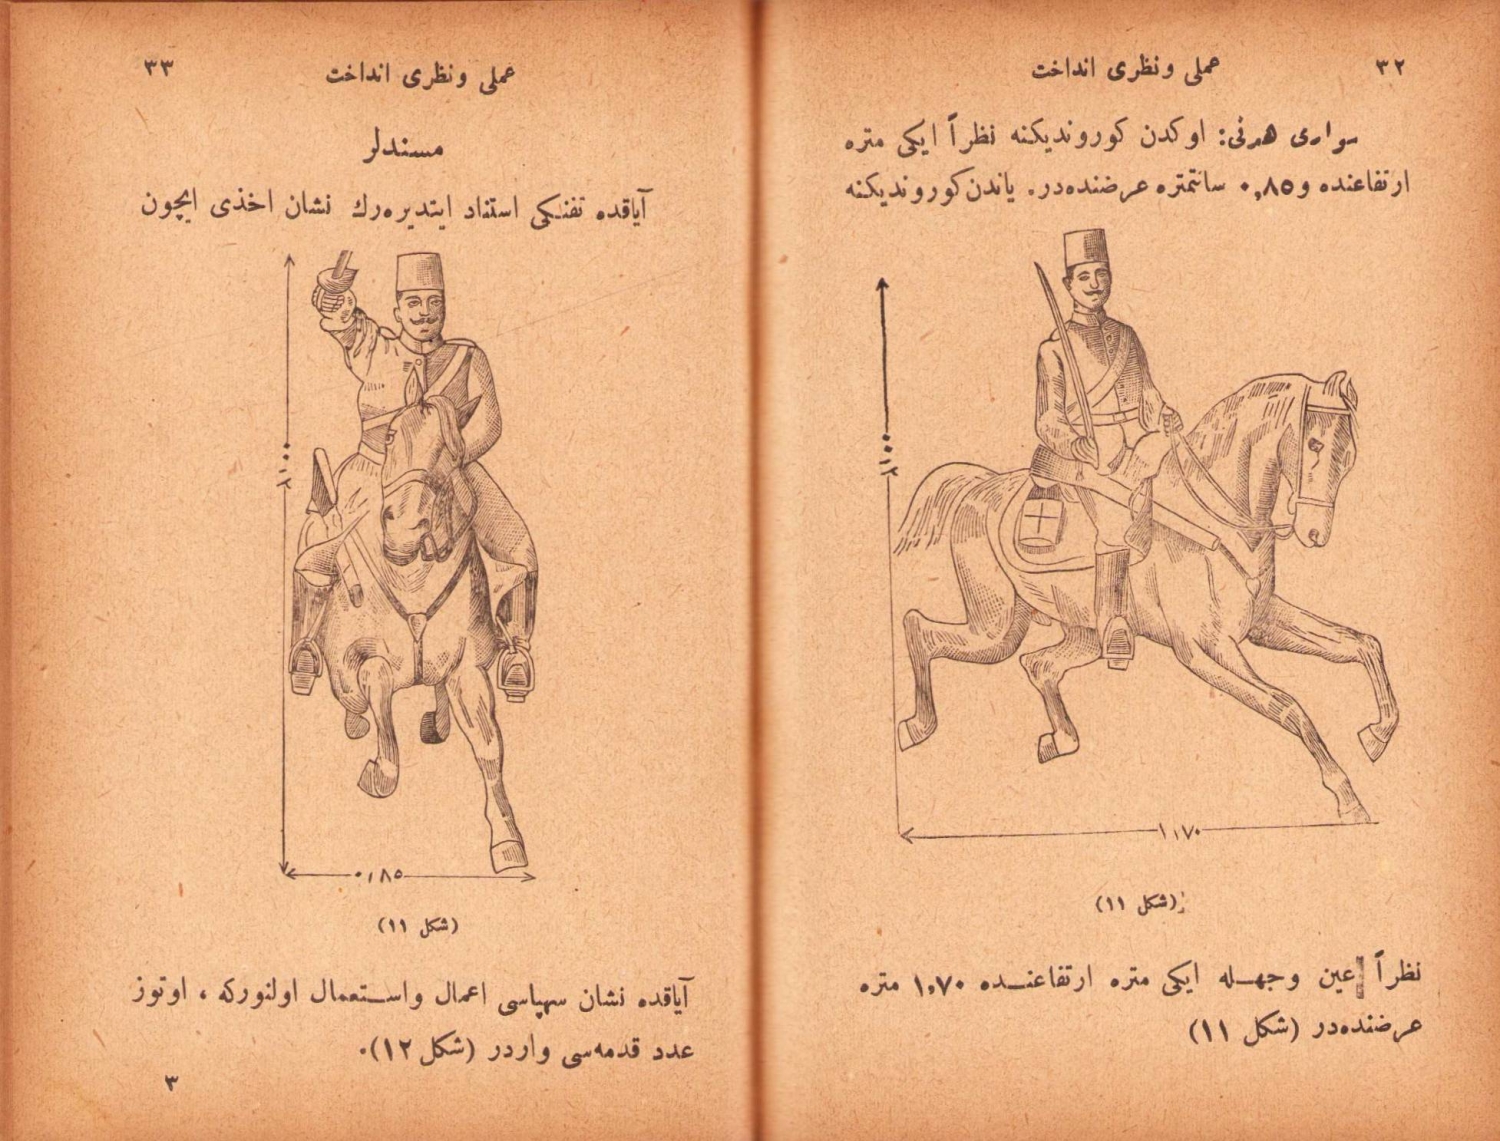 ٣٢
عملی ونظری انداخت
سواری هدفی: اوكدن كوروندیكنه نظراً ایكی متره
ارتفاعنده و٠,٨٥ سانتمتره عرضنده‌در. یاندن كوروندیكنه
٢,٠٠
١,٧٠
(شكل ١١)
نظراً عین وجهـله ایكی متره ارتفاعنــده ١,٧٠ متره
عرضنده‌در (شكل ١١)
٣٣
عملی ونظری انداخت
مسندلر
آیاقده تفنـكی استناد ایتدیره‌رك نشان اخذی ایچون
٢,٠٠
٠,٨٥
(شكل ١١)
آیاقده نشان سهپاسی اعمال واسـتعمال اولنوركه ، اوتوز
عدد قدمه‌سی واردر (شكل ١٢).
٣